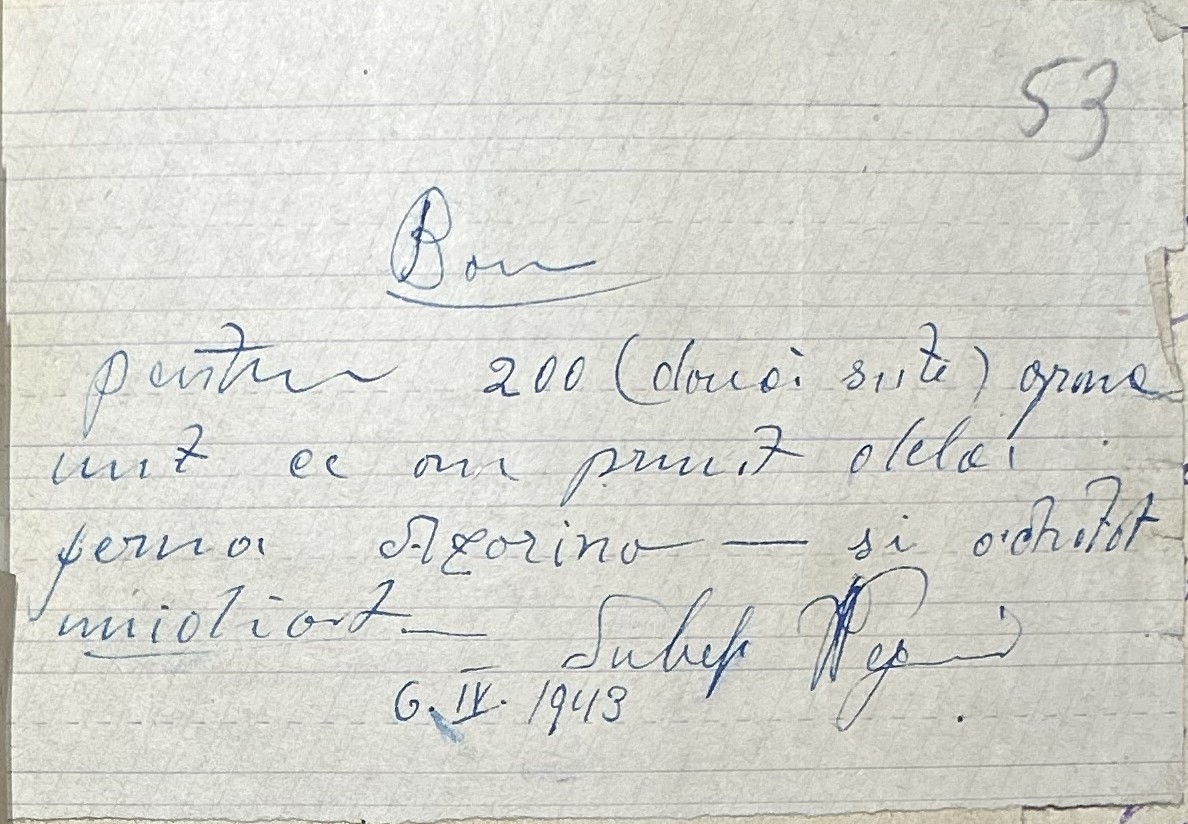 53
Bon
pentru 200 (două sute) grame
unt ce am primit dela
ferma Azarina — si achitat
imidiat.—
Subșef
6. IV. 1943